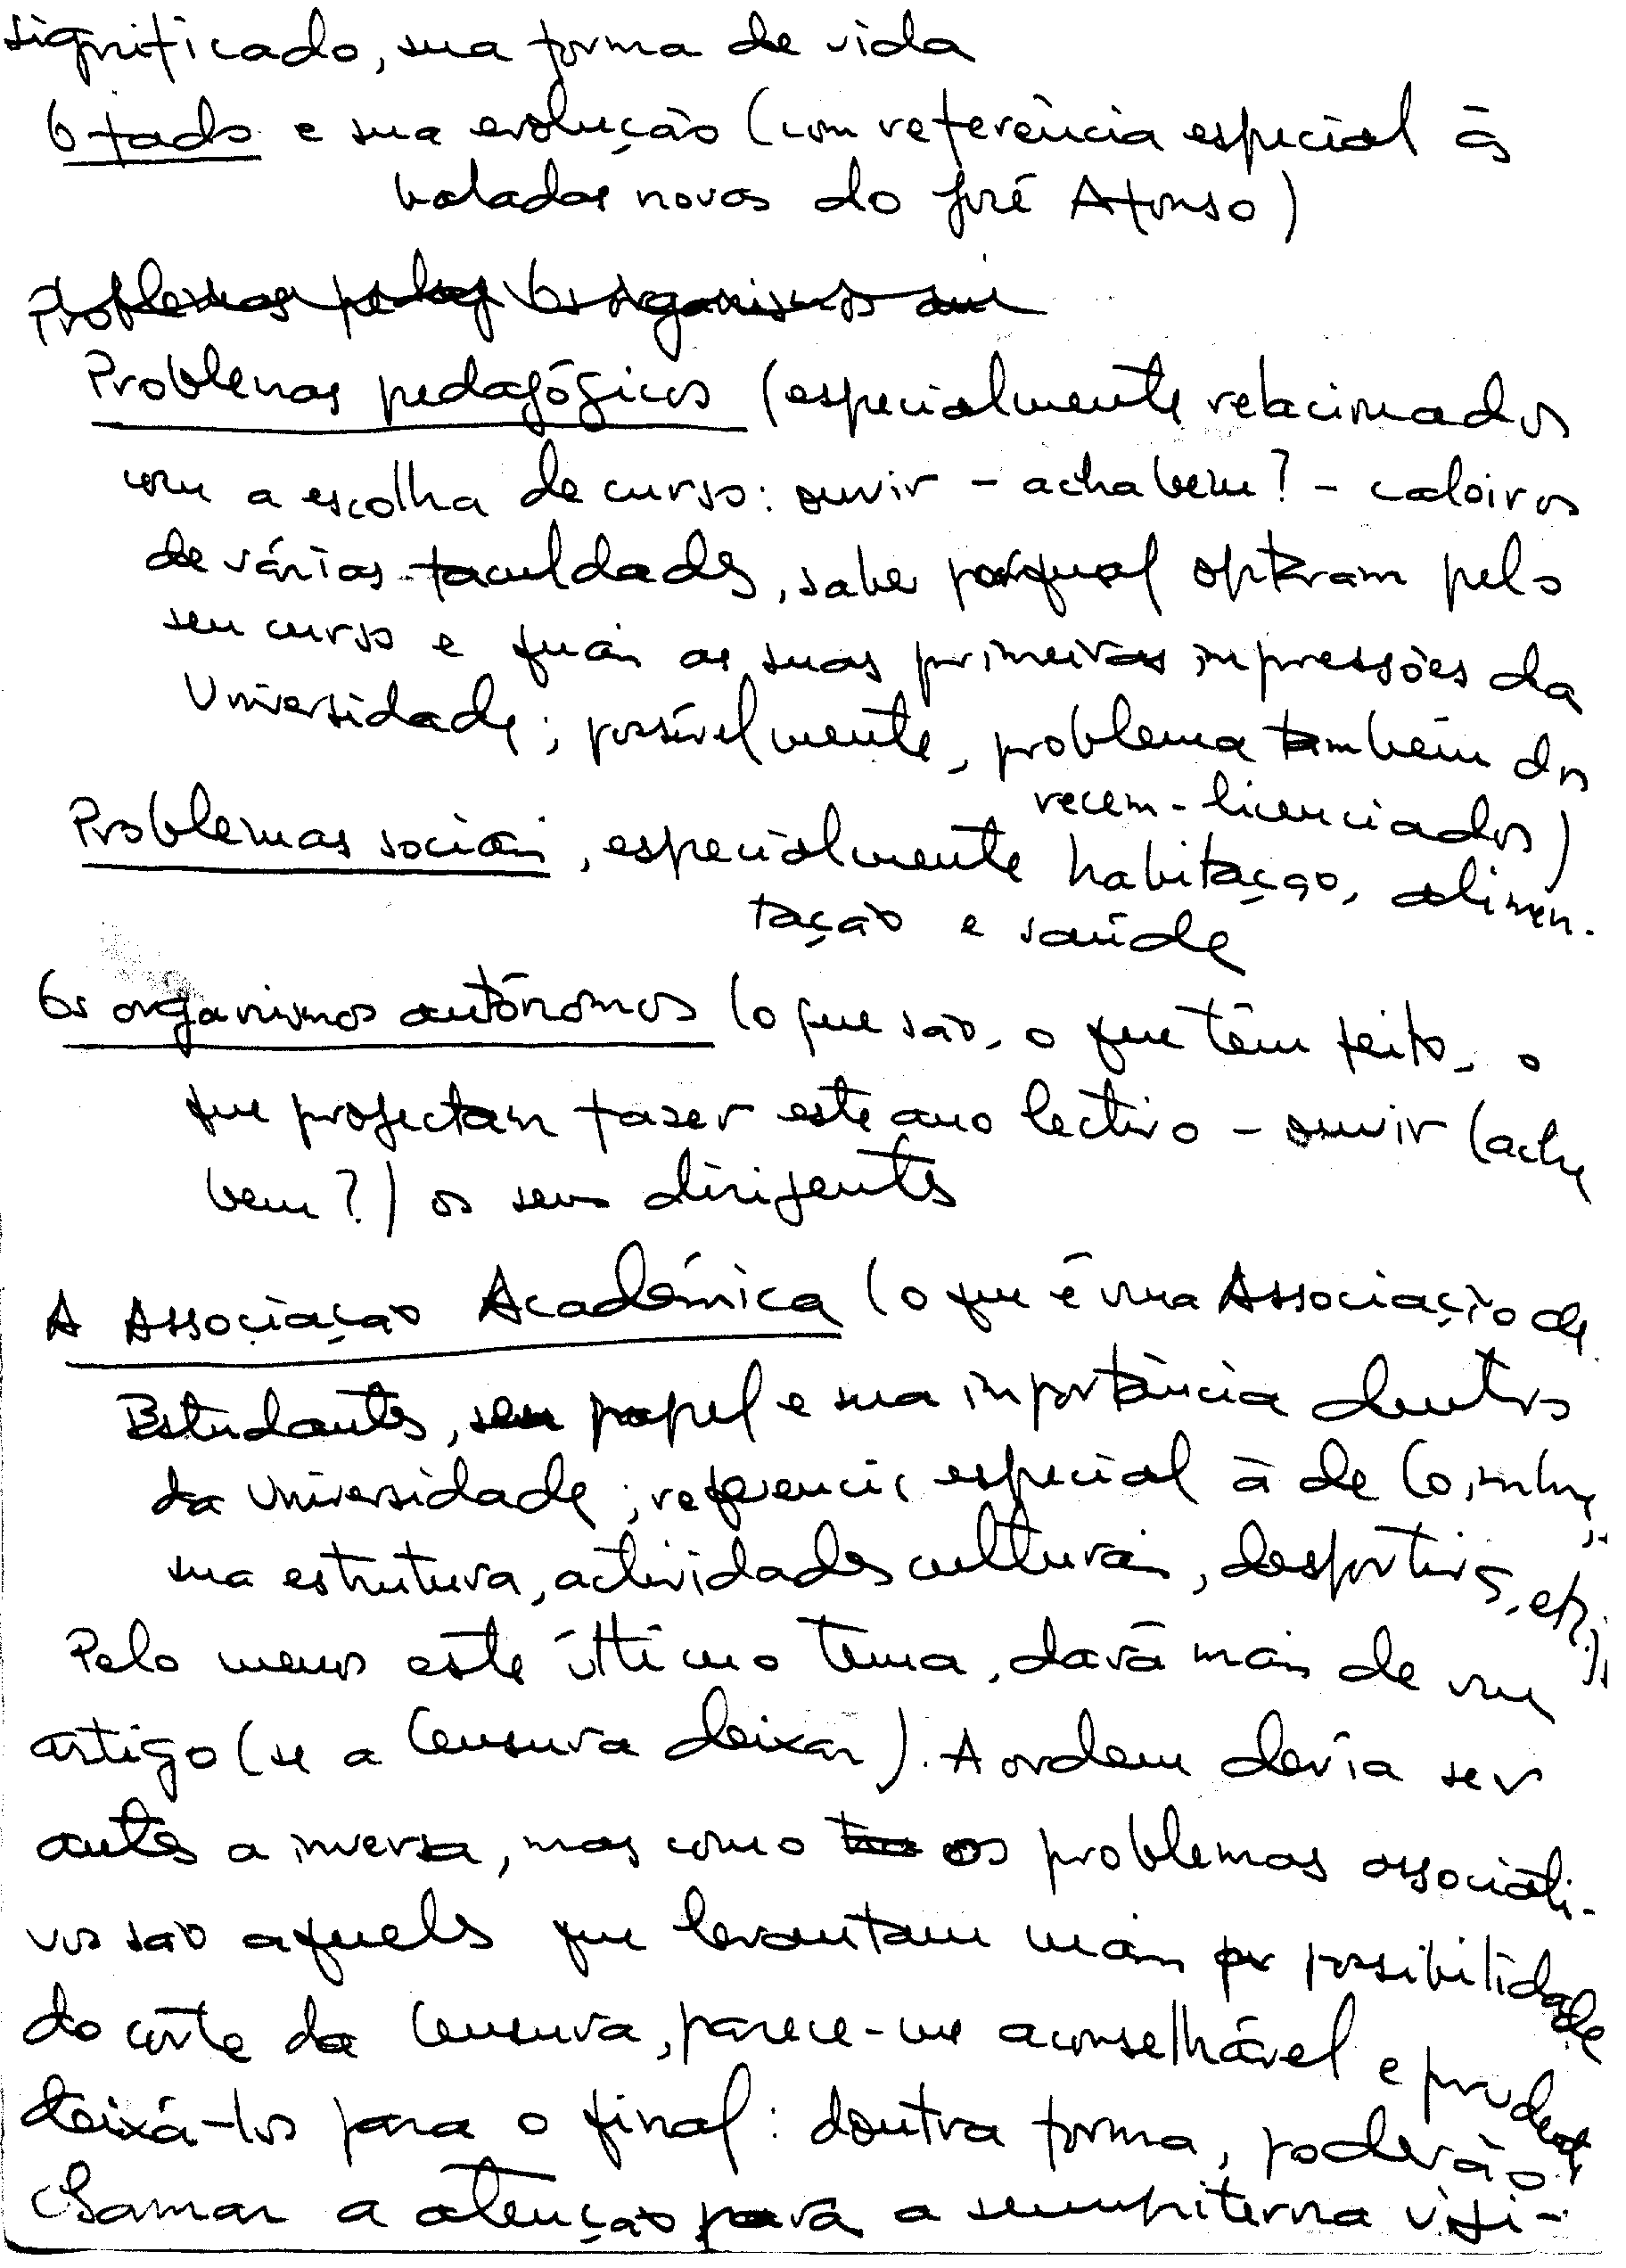 significado, sua forma de vida
O fado e sua evolução (com referência especial às
baladas novas do José Afonso)
Problemas pedag Os organismos aui
Problemas pedagógicos (especialmente relacionados
com a escolha de curso: ouvir - acha bem? - caloiros
de várias faculdades, saber porqual optaram pelo
seu curso e quais as suas primeiras impressões da
Universidade; possívelmente, problema também dos
recem-licenciados)
Problemas sociais, especialmente habitação, alimen-
tação e saúde
Os organismos autónomos (o que são, o que têm feito, o
que projectam fazer este ano lectivo - ouvir (acha
bem?) os seus dirigentes
A Associação Académica (o que é uma Associação de
Estudantes, seu papel e sua importância dentro
da Universidade; referencia especial à de Coimbra;
sua estrutura, actividades culturais, desportivas, etc.),
Pelo menos este último tema, dará mais de um
artigo (se a Censura deixar). A ordem devia ser
antes a inversa, mas como os problemas associati-
vos são aqueles que levantam mais possibilidade
do corte da Censura, parece-me aconselhável e prudente
deixá-los para o final: doutra forma, poderão
chamar a atenção para a sempiterna vigi-